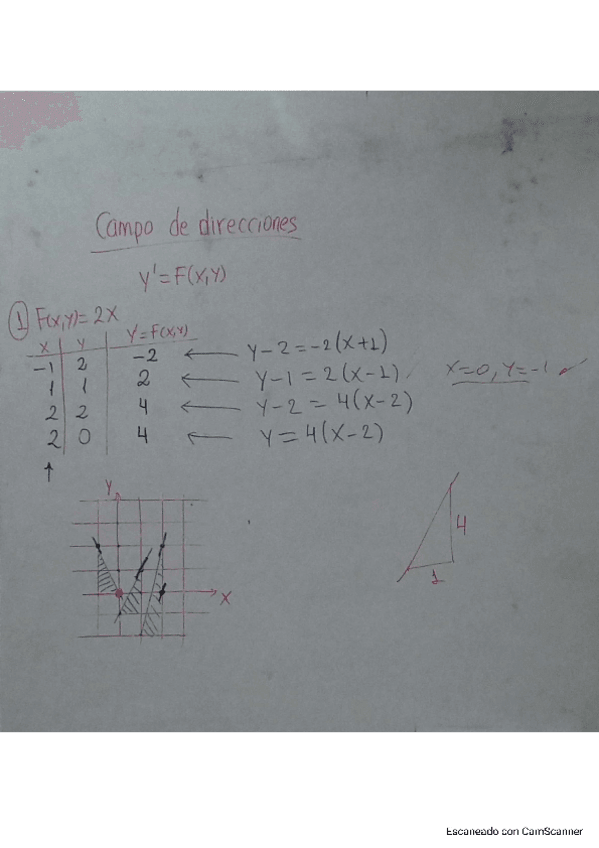 Campo de direcciones
y' = F(x,y)
① F(x,y) = 2x
x y Y=F(x,y)
-1 2 -2 ← y-2=-2(x+1)
1 1 2 ← y-1=2(x-1) x=0, y=-1 ✓
2 2 4 ← y-2=4(x-2)
2 0 4 ← y=4(x-2)
↑
Y
4
1
X
Escaneado con CamScanner